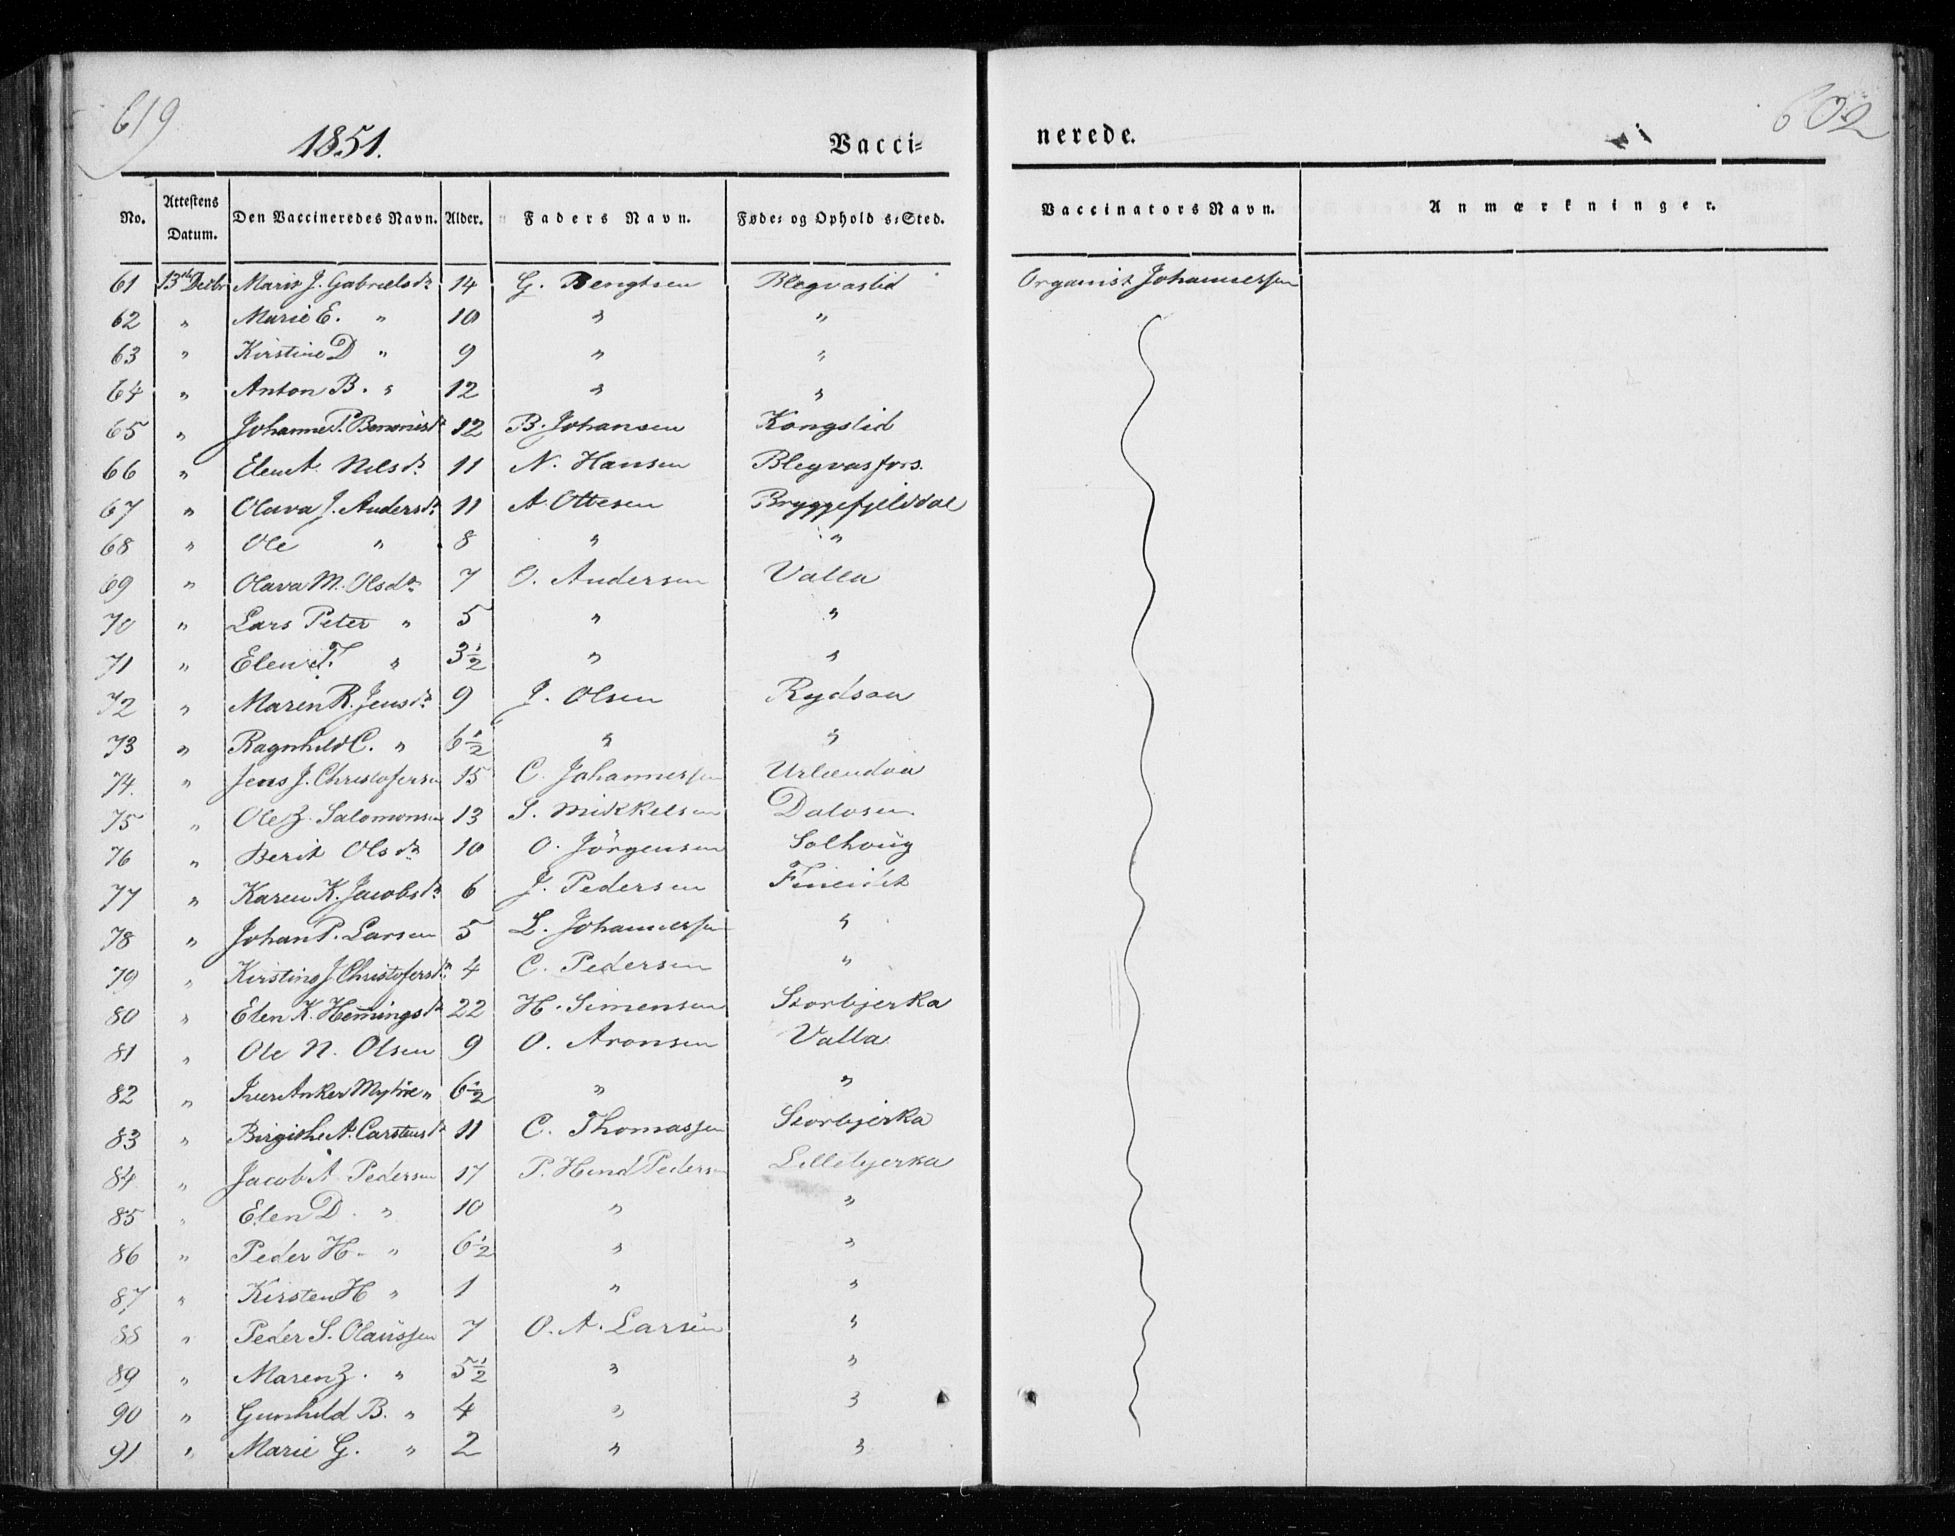 619
602
1851.
Vacci=
nerede.
No. Attestens Datum. Den Vaccineredes Navn. Alder. Faders Navn. Føde= og Ophold s=Sted. Vaccinators Navn. Anmærkninger.
61 13de Decbr Maria J. Gabrielsdr. 14 G. Bengtsen Blegvaslid Organist Johannessen
62 " Marie E. " 10 " "
63 " Kirstine D " 9 " "
64 " Anton B. " 12 " "
65 " Johanne P. Benonisdr 12 B. Johansen Kongslid
66 " Elen A. Nilsdr. 11 N. Hansen Blegvasfors.
67 " Olava J. Andersdr. 11 A. Ottesen Bryggefjelddal
68 " Ole " 8 " "
69 " Olava M. Olsdr. 7 O. Andersen Valla
70 " Lars Peter " 5 " "
71 " Elen T. " 3½ " "
72 " Maren R. Jensdr. 9 J. Olsen Rydsaa
73 " Ragnhild C. " 6½ " "
74. " Jens J. Christofersen 15 C. Johannessen
75 " Ole Z. Salomonsen 13 S. Mikkelsen Dalosen
76 " Berit Olsdr. 10 O. Jörgensen Solhoug
77 " Karen K. Jacobsdr. 6 J. Pedersen Fineidet
78 " Johan P. Larsen 5 L. Johannessen "
79 " Kirstine J. Christofersdr. 4 C. Pedersen "
80 " Elen K. Hemingsdr 22 H. Simensen Storbjerka
81 " Ole N. Olsen 9 O. Aronsen Valla
82 " Iver Anker " 6½ " "
83 " Birgithe A. Carstensdr 11 C. Thomassen Storbjerka
84 " Jacob A. Pedersen 17 P. Hind Pedersen Lillebjerka
85 " Elen D. " 10 " "
86 " Peder H. " 6½ " "
87 " Kirsten H " 1 " "
88 " Peder S. Olaussen 7 O. A. Larsen "
89 " Maren Z. " 5½ " "
90 " Gunhild B. " 4 " "
91 " Marie G. " 2 " "